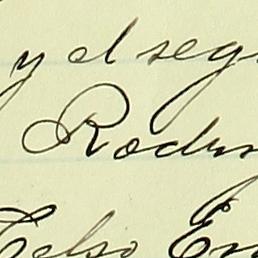 y el seg
Rodr
Celso En